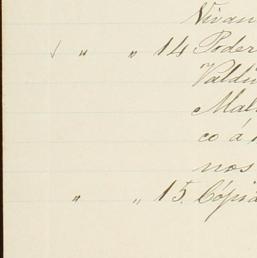 Nivan
√ " " 14 Poder
Valdi
Mal
co á
nos
" " 15. Cópia